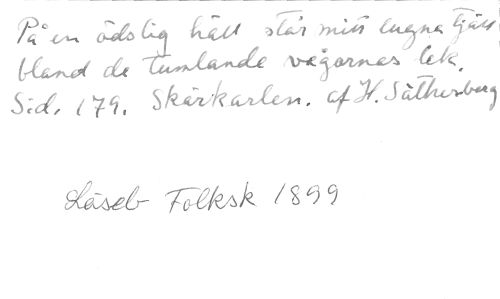 På en ödslig häll står mitt lugna tjäll
bland de tumlande vågornas lek.
Sid. 179. Skärkarlen. af H. Sätherberg
Läseb Folksk 1899